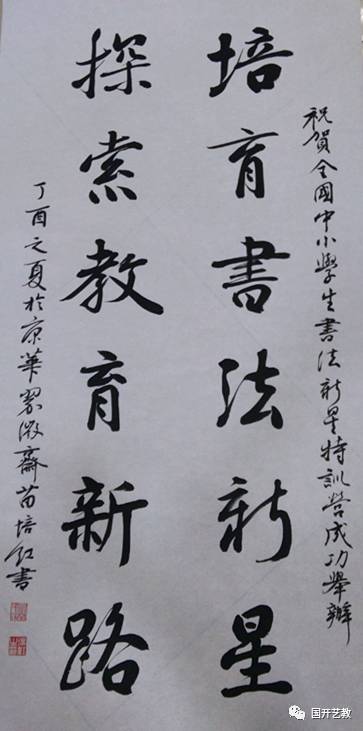 祝贺全國中小學生書法新星特訓营成功舉辦
培育書法新星
探索教育新路
丁酉之夏於京華翏微齋苗培红書
国开艺教